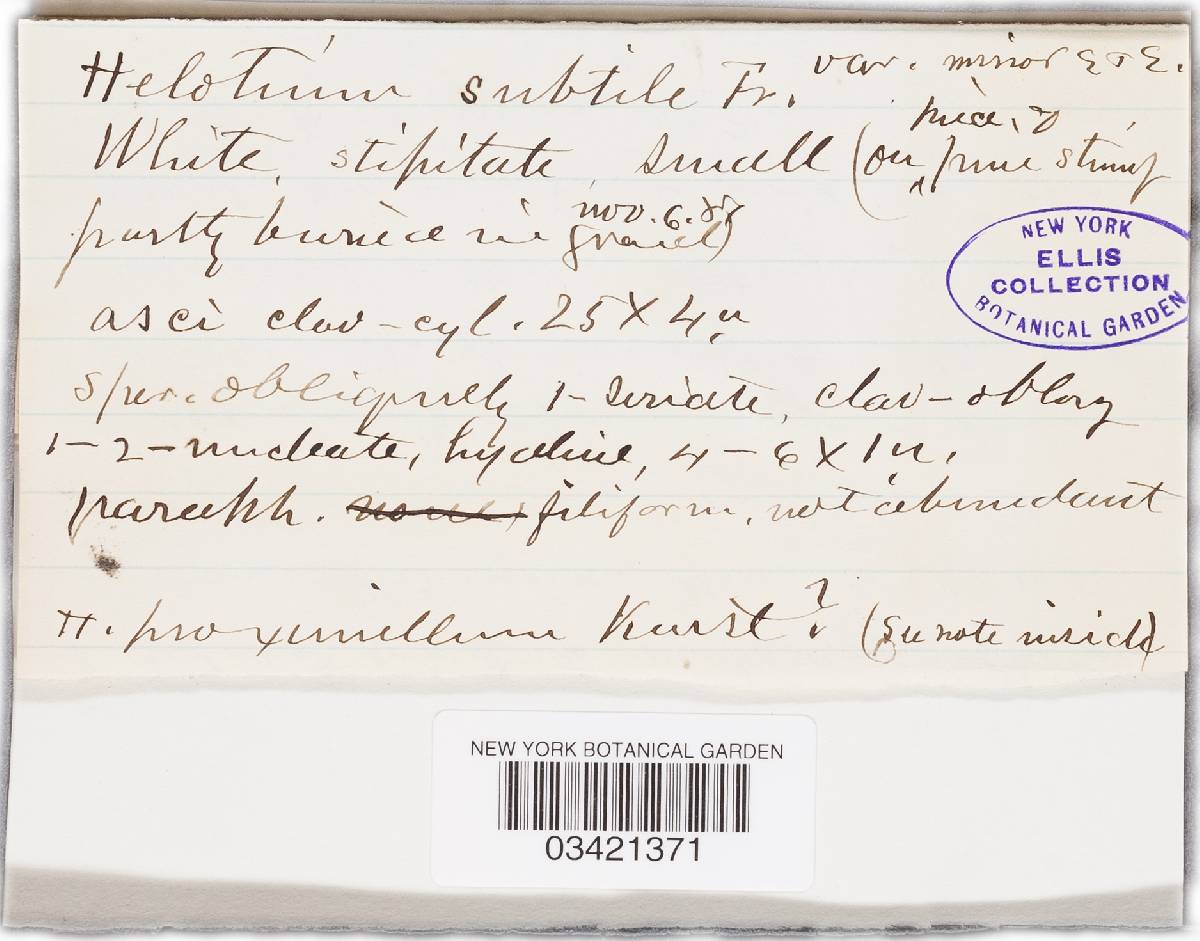 Helotium subtile Fr. var. minor E & E.
White, stipitate, small (on pine stump
partly buried in gravel)
Nov. 6. 87
NEW YORK
ELLIS
COLLECTION
BOTANICAL GARDEN
asci clav-cyl. 25 X 4 u
spor. obliquely 1-seriate, clav-oblong
1-2-nucleate, hyaline, 4-6 X 1 u.
paraph. none, filiform, not abundant
H. proximellum Karst? (See note inside)
NEW YORK BOTANICAL GARDEN
03421371